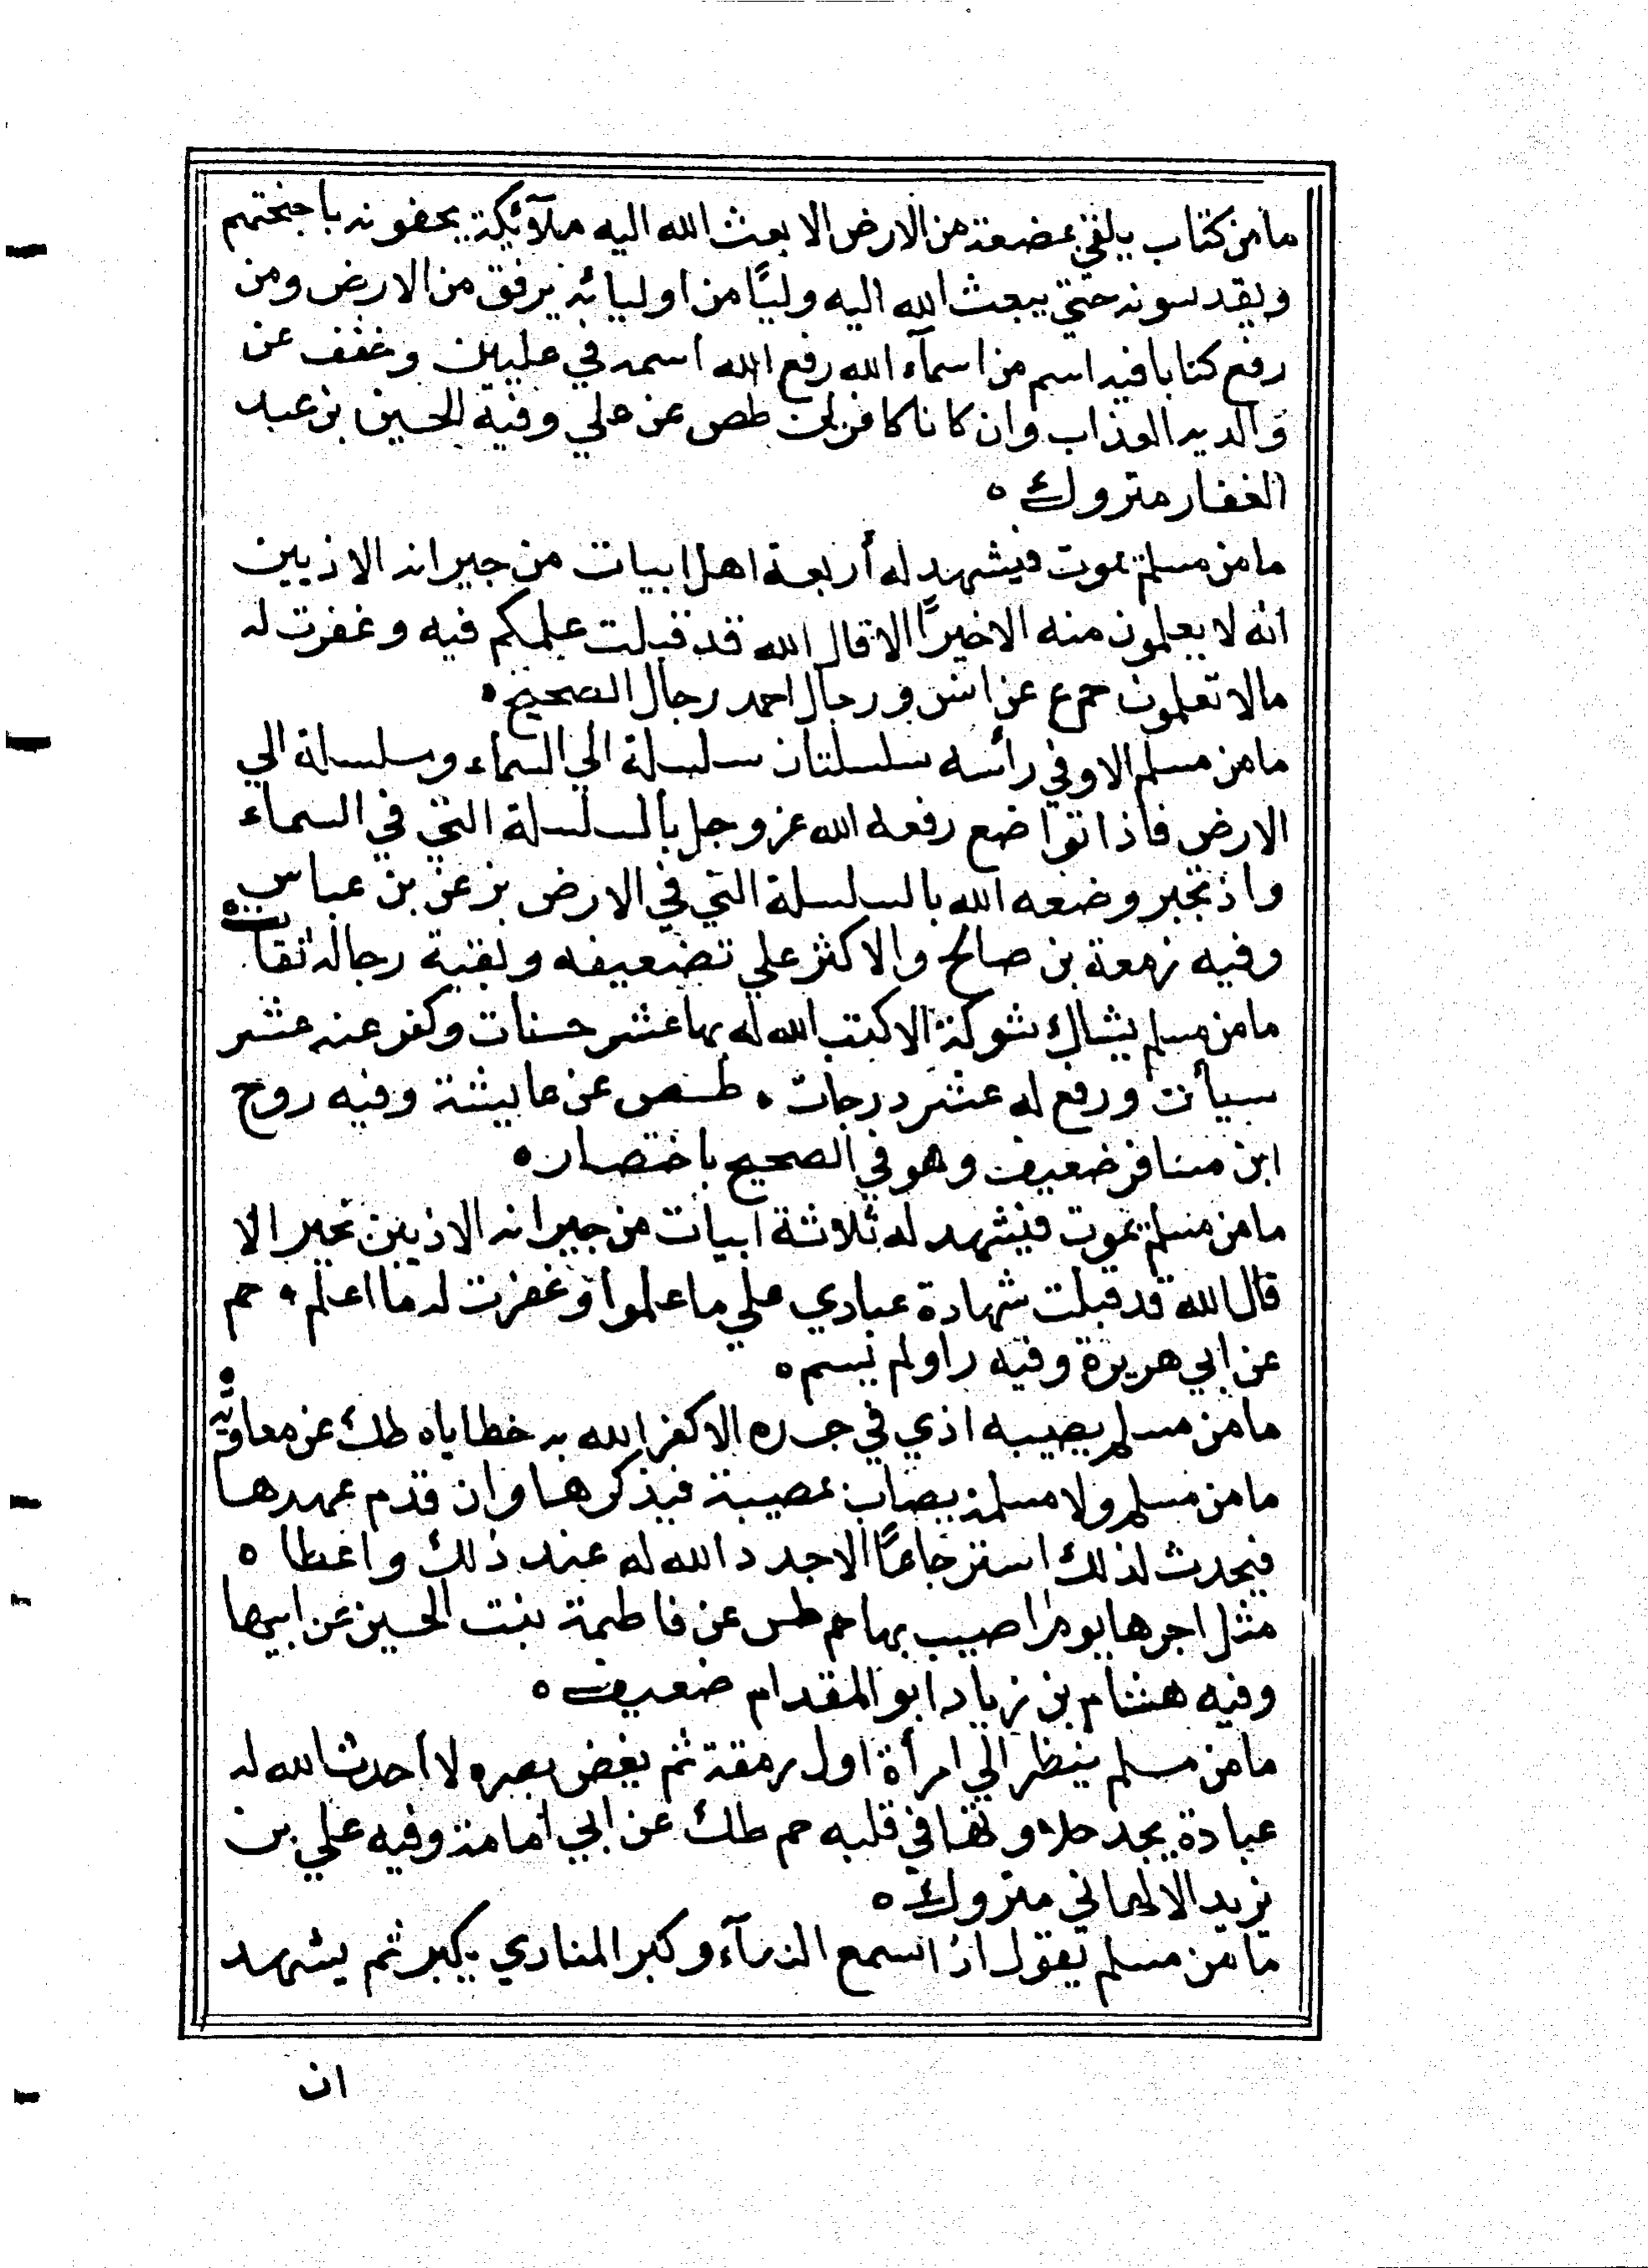 ما من كتاب يلقي بمضعة من الارض الا بعث الله اليه ملآئكة يحفونه باجنحتهم
ويقدسونه حتي يبعث الله اليه وليًا من اوليائه يرفق من الارض ومن
رفع كتابا فيه اسم من اسمآء الله رفع الله اسمه في عليين وخفف عن
والديه العذاب وان كانا كافرين طص عن علي وفيه الحسين بن عبد
الغفار متروك ه
ما من مسلم يموت فيشهد له أربعة اهل ابيات من جيرانه الاذيين
انه لا يعلمون منه الاخيرًا الا قال الله قد قبلت علمكم فيه وغفرت له
مالا تعلمون حم ع عن انس ورجال احمد رجال الصحيح ه
ما من مسلم الا وفي رأسه سلسلتان سلسلة الي السماء وسلسلة الي
الارض فاذا تواضع رفعه الله عز وجل بالسلسلة التي في السماء
واذ تجبر وضعه الله بالسلسلة التي في الارض بز عن بن عباس
وفيه زمعة بن صالح والاكثر علي تضعيفه وبقية رجاله ثقات ه
ما من مسلم يشاك شوكة الا كتب الله له بها عشر حسنات وكفر عنه عشر
سيأت ورفع له عشر درجات ه طص عن عايشة وفيه روح
ابن مسافر ضعيف وهو في الصحيح باختصار ه
ما من مسلم يموت فيشهد له ثلاثة ابيات من جيرانه الاذيين بخير الا
قال الله قد قبلت شهادة عبادي علي ما علموا وغفرت له ما اعلم ه حم
عن ابي هريرة وفيه راو لم يسم ه
ما من مسلم يصيبه اذي في جسده الا كفر الله به خطاياه طك عن معاوية ه
ما من مسلم ولا مسلمة يصاب بمصيبة فيذكرها وان قدم عهدها
فيحدث لذلك استرجاعًا الا جدد الله له عند ذلك واعطا ه
مثل اجرها يوم اصيب بها حم طس عن فاطمة بنت الحسين عن ابيها
وفيه هشام بن زياد ابو المقدام ضعيف ه
ما من مسلم ينظر الي امرأة اول رمقة ثم يغض بصره لا احدث الله له
عبادة يجد حلاوتها في قلبه حم طك عن ابي أمامة وفيه علي بن
يزيد الالهاني متروك ه
ما من مسلم يقول اذ اسمع الندآء وكبر المنادي يكبر ثم يشهد
ان